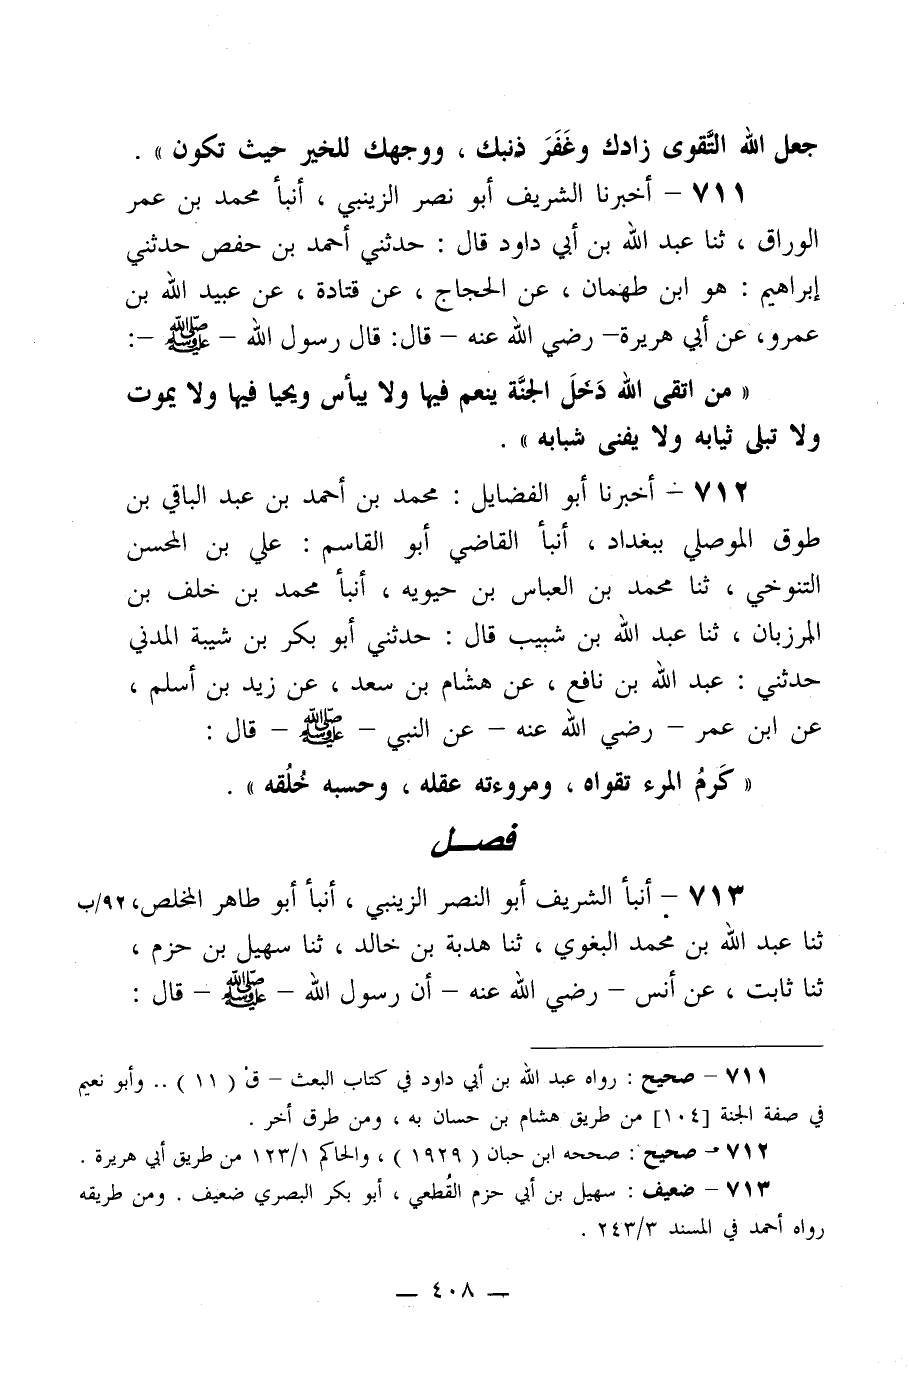 جعل الله التَّقوى زادك وغَفَرَ ذنبك ، ووجهك للخير حيث تكون » .
٧١١ – أخبرنا الشريف أبو نصر الزينبي ، أنبأ محمد بن عمر
الوراق ، ثنا عبد الله بن أبي داود قال : حدثني أحمد بن حفص حدثني
إبراهيم : هو ابن طهمان ، عن الحجاج ، عن قتادة ، عن عبيد الله بن
عمرو، عن أبي هريرة– رضي الله عنه – قال: قال رسول الله – ﷺ –:
« من اتقى الله دَخَلَ الجنَّة ينعم فيها ولا يبأس ويحيا فيها ولا يموت
ولا تبلى ثيابه ولا يفنى شبابه » .
٧١٢ – أخبرنا أبو الفضايل : محمد بن أحمد بن عبد الباقي بن
طوق الموصلي ببغداد ، أنبأ القاضي أبو القاسم : علي بن المحسن
التنوخي ، ثنا محمد بن العباس بن حيويه ، أنبأ محمد بن خلف بن
المرزبان ، ثنا عبد الله بن شبيب قال : حدثني أبو بكر بن شيبة المدني
حدثني : عبد الله بن نافع ، عن هشام بن سعد ، عن زيد بن أسلم ،
عن ابن عمر – رضي الله عنه – عن النبي – ﷺ – قال :
« كَرمُ المرء تقواه ، ومروءته عقله ، وحسبه خُلُقه » .
فصـــل
٧١٣ – أنبأ الشريف أبو النصر الزينبي ، أنبأ أبو طاهر المخلص، ٩٢/ب
ثنا عبد الله بن محمد البغوي ، ثنا هدبة بن خالد ، ثنا سهيل بن حزم ،
ثنا ثابت ، عن أنس – رضي الله عنه – أن رسول الله – ﷺ – قال :
٧١١ – صحيح : رواه عبد الله بن أبي داود في كتاب البعث – ق ( ١١ ) .. وأبو نعيم
في صفة الجنة [١٠٤] من طريق هشام بن حسان به ، ومن طرق أخر .
٧١٢ – صحيح : صححه ابن حبان ( ١٩٢٩ ) ، والحاكم ١٢٣/١ من طريق أبي هريرة .
٧١٣ – ضعيف : سهيل بن أبي حزم القُطعي ، أبو بكر البصري ضعيف . ومن طريقه
رواه أحمد في المسند ٢٤٣/٣ .
— ٤٠٨ —